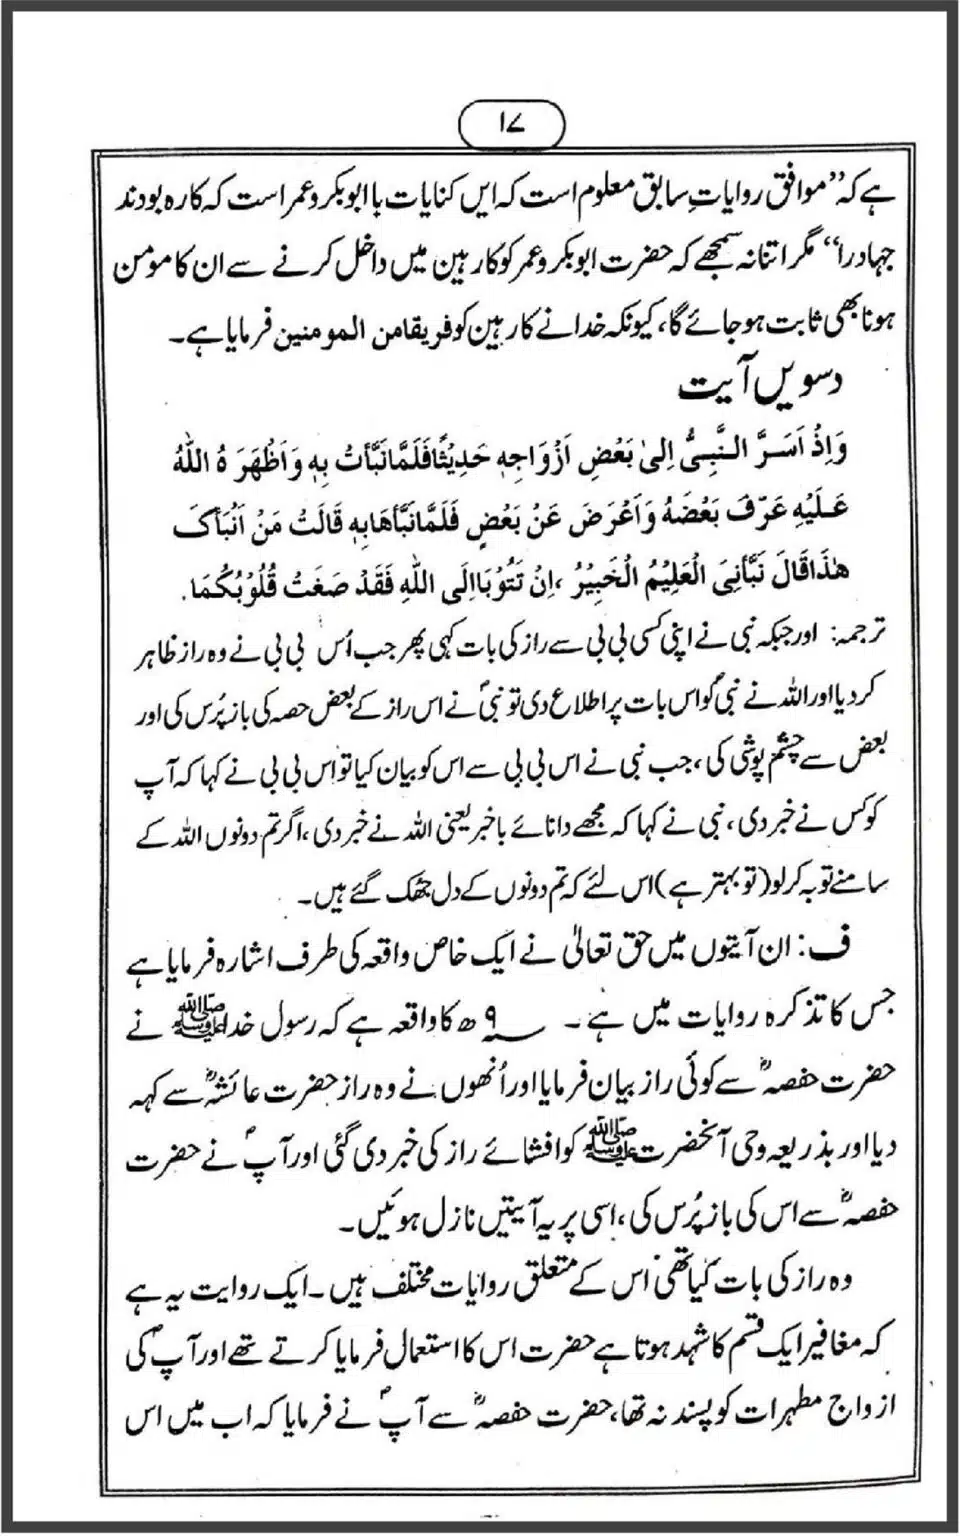 ۱۷
ہے کہ ’’موافق روایاتِ سابق معلوم است کہ ایں کنایات با ابوبکر وعمر است کہ کارہ بودند
جہاد را‘‘ مگر اتنا نہ سمجھے کہ حضرت ابوبکر وعمر کو کارہین میں داخل کرنے سے ان کا مومن
ہونا بھی ثابت ہو جائے گا، کیونکہ خدا نے کارہین کو فریقا من المومنین فرمایا ہے۔
دسویں آیت
وَاِذْ اَسَرَّ النَّبِیُّ اِلیٰ بَعْضِ اَزْوَاجِہٖ حَدِیْثًا فَلَمَّا نَبَّأَتْ بِہٖ وَاَظْھَرَہُ اللّٰہُ
عَلَیْہِ عَرَّفَ بَعْضَہٗ وَاَعْرَضَ عَنْ بَعْضٍ فَلَمَّا نَبَّأَھَا بِہٖ قَالَتْ مَنْ اَنْبَأَکَ
ھٰذَا قَالَ نَبَّأَنِیَ الْعَلِیْمُ الْخَبِیْرُ، اِنْ تَتُوْبَا اِلَی اللّٰہِ فَقَدْ صَغَتْ قُلُوْبُکُمَا.
ترجمہ: اور جبکہ نبی نے اپنی کسی بی بی سے راز کی بات کہی پھر جب اُس بی بی نے وہ راز ظاہر
کر دیا اور اللہ نے نبیؐ کو اس بات پر اطلاع دی تو نبیؐ نے اس راز کے بعض حصہ کی باز پُرس کی اور
بعض سے چشم پوشی کی، جب نبی نے اس بی بی سے اس کو بیان کیا تو اس بی بی نے کہا کہ آپ
کو کس نے خبر دی، نبی نے کہا کہ مجھے دانائے باخبر یعنی اللہ نے خبر دی، اگر تم دونوں اللہ کے
سامنے توبہ کر لو (تو بہتر ہے) اس لئے کہ تم دونوں کے دل جھک گئے ہیں۔
ف: ان آیتوں میں حق تعالیٰ نے ایک خاص واقعہ کی طرف اشارہ فرمایا ہے
جس کا تذکرہ روایات میں ہے۔ ۹؁ھ کا واقعہ ہے کہ رسول خدا ﷺ نے
حضرت حفصہؓ سے کوئی راز بیان فرمایا اور اُنھوں نے وہ راز حضرت عائشہؓ سے کہہ
دیا اور بذریعہ وحی آنحضرت ﷺ کو افشائے راز کی خبر دی گئی اور آپؐ نے حضرت
حفصہؓ سے اس کی باز پُرس کی، اسی پر یہ آیتیں نازل ہوئیں۔
وہ راز کی بات کیا تھی اس کے متعلق روایات مختلف ہیں۔ ایک روایت یہ ہے
کہ مغافیر ایک قسم کا شہد ہوتا ہے حضرت اس کا استعمال فرمایا کرتے تھے اور آپؐ کی
ازواج مطہرات کو پسند نہ تھا، حضرت حفصہؓ سے آپؐ نے فرمایا کہ اب میں اس